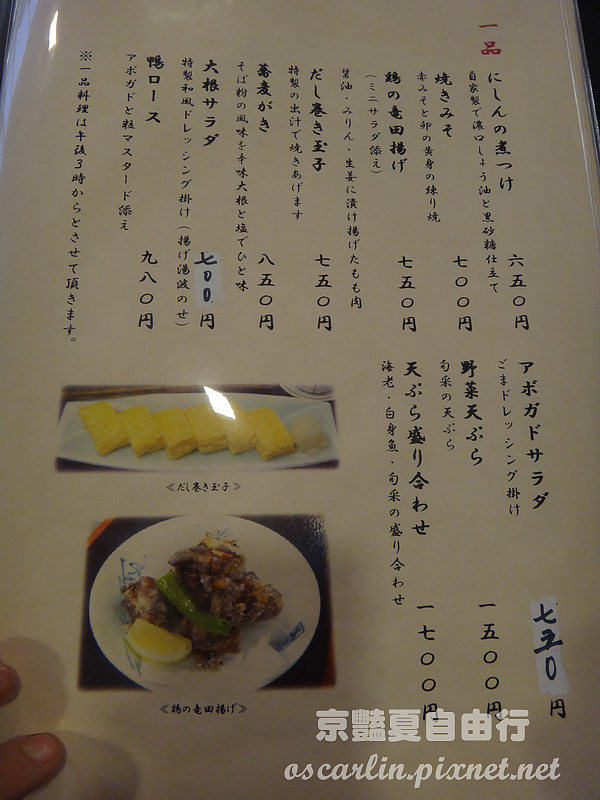 一品
にしんの煮つけ
自家製で濃口しょう油と黒砂糖仕立て
六五〇円
焼きみそ
赤みそと卵の黄身の練り焼
七〇〇円
鶏の竜田揚げ
(ミニサラダ添え)
醤油・みりん・生姜に漬け揚げたもも肉
七五〇円
だし巻き玉子
特製の出汁で焼きあげます
七五〇円
蕎麦がき
そば粉の風味を辛味大根と塩でひと味
八五〇円
大根サラダ
特製和風ドレッシング掛け(揚げ湯波のせ)
七〇〇円
鴨ロース
アボガドと粒マスタード添え
九八〇円
※一品料理は午後3時からとさせて頂きます。
アボガドサラダ
ごまドレッシング掛け
七五〇円
野菜天ぷら
旬采の天ぷら
一五〇〇円
天ぷら盛り合わせ
海老・白身魚・旬采の盛り合わせ
一七〇〇円
≪だし巻き玉子≫
≪鶏の竜田揚げ≫
京豔夏自由行
oscarlin.pixnet.net